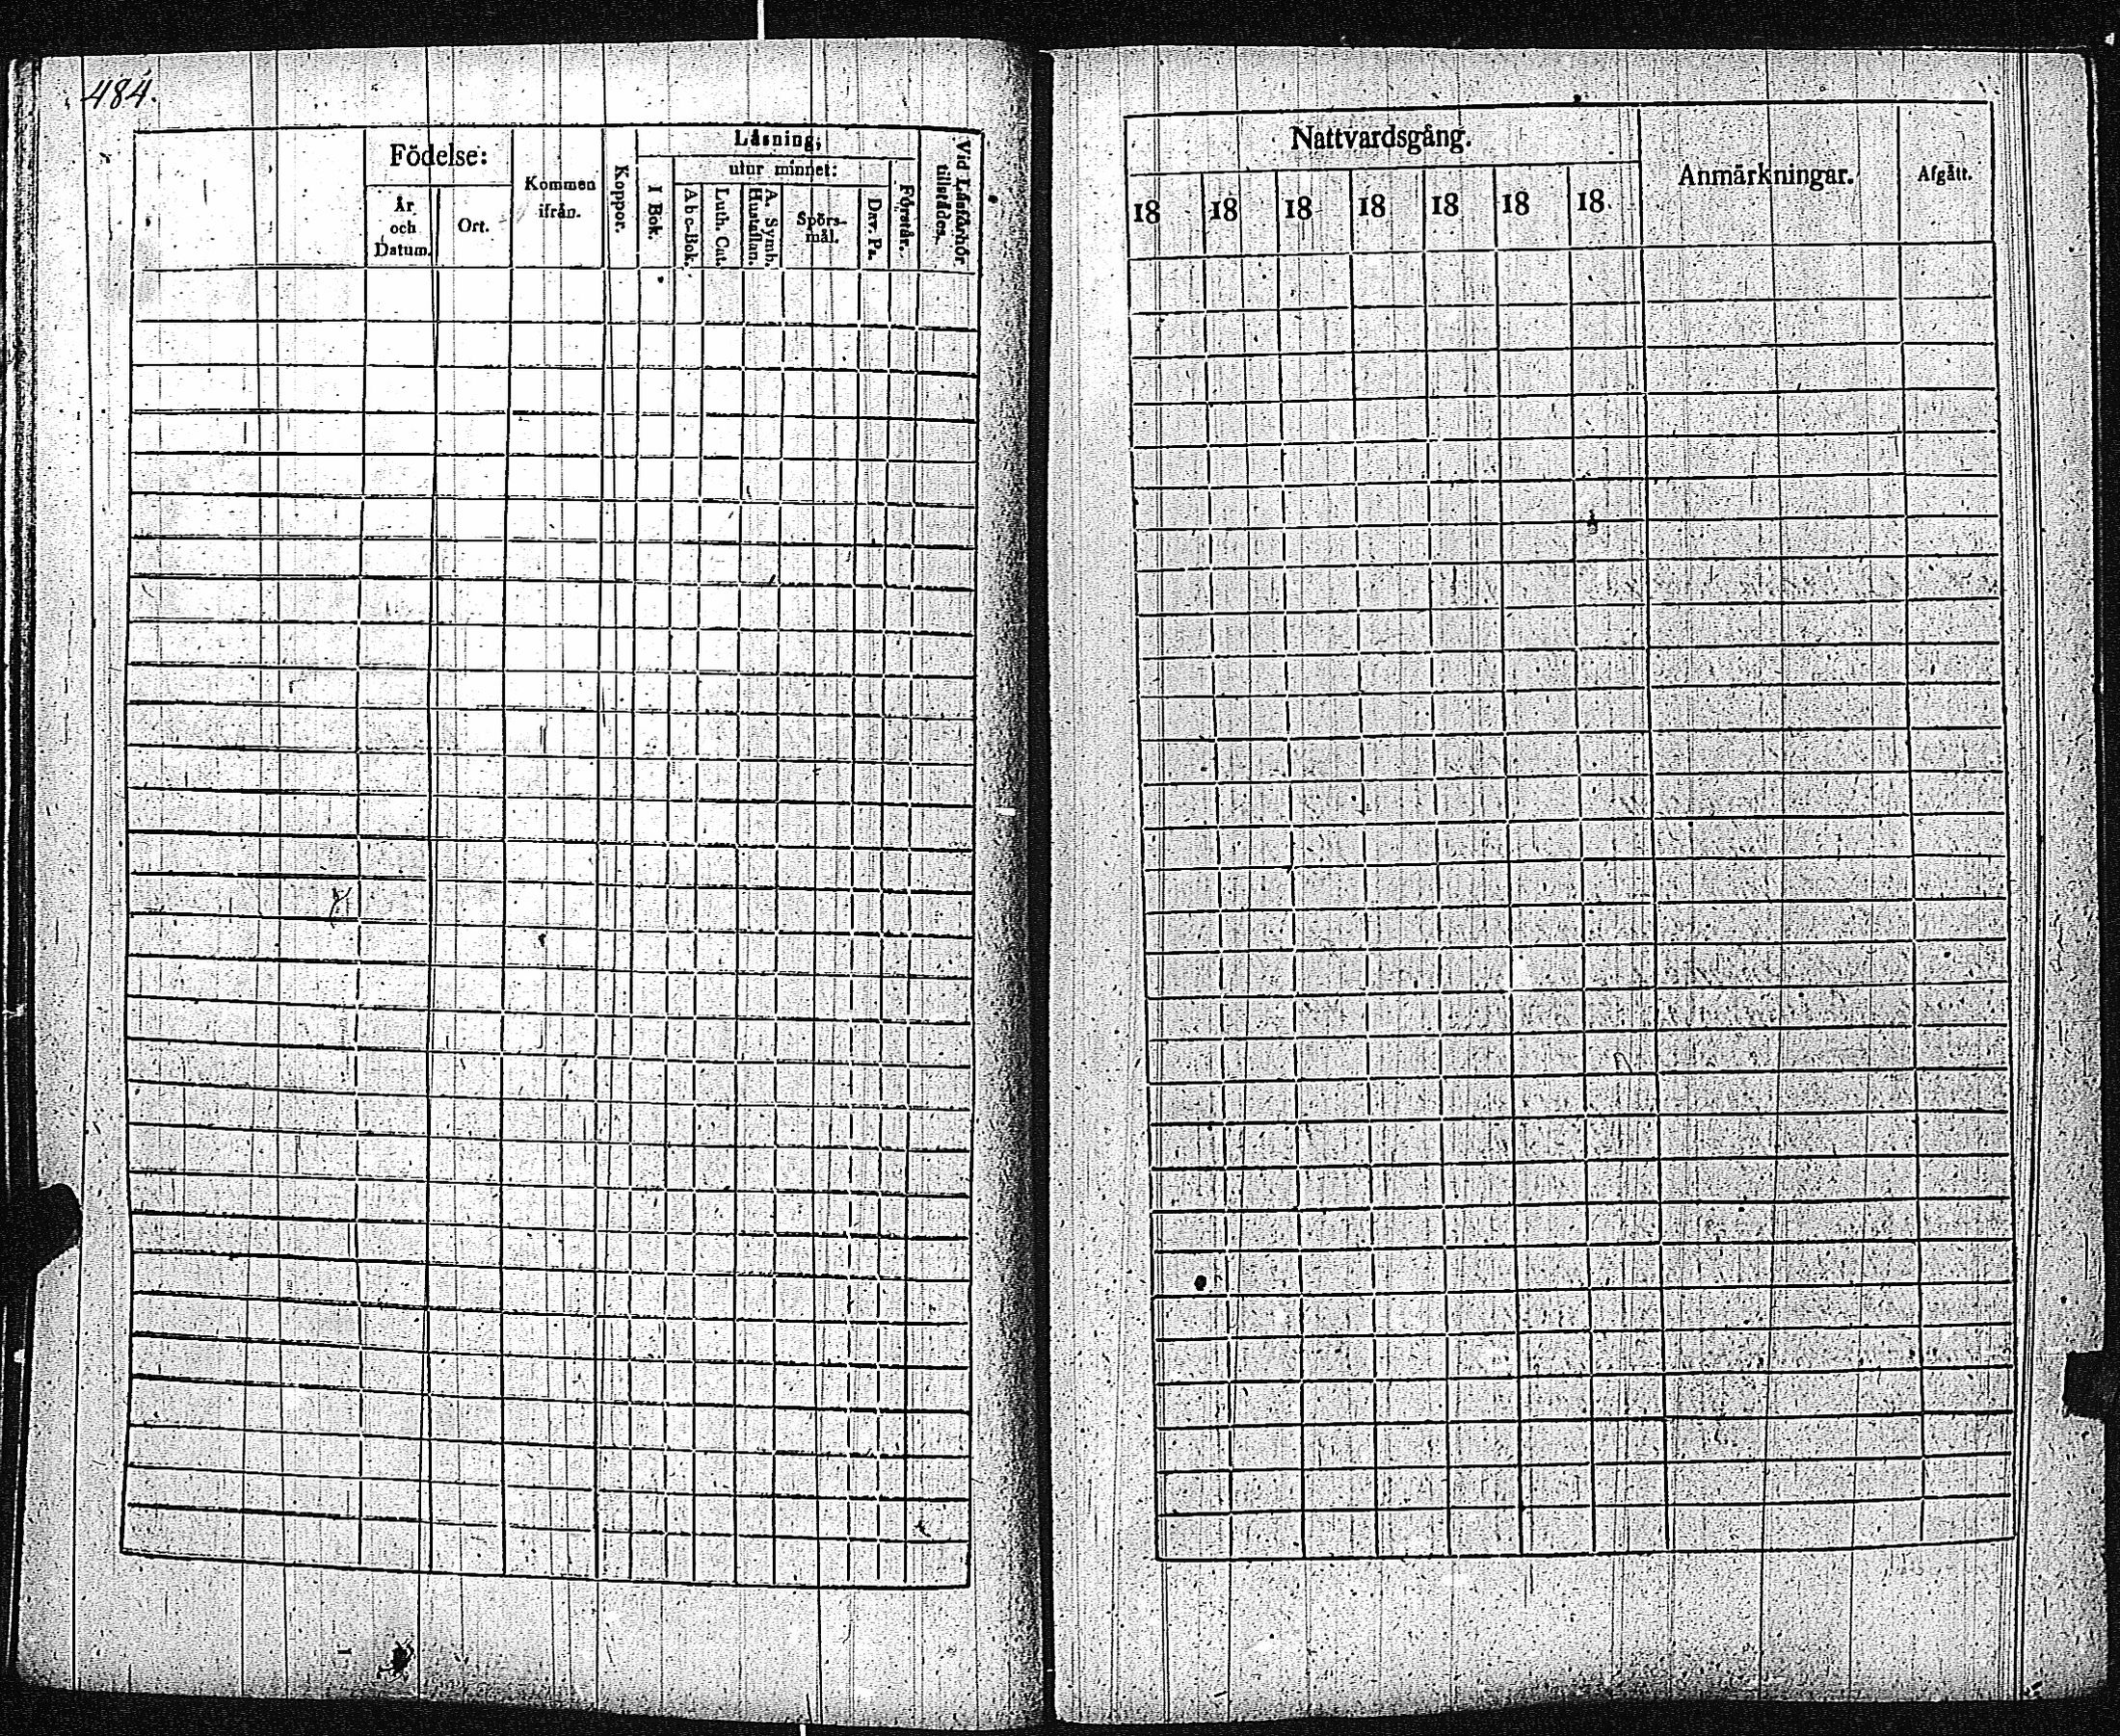 484.
Födelse:
År
och
Datum.
Ort.
Kommen
ifrån.
Koppor.
Läsning;
I Bok.
utur minnet:
Abc-Bok.
Luth. Cat.
A. Symb.
Hustaflan.
Spörs-
mål.
Dav. Ps.
Förstår.
Vid Läsförhör
tillstädes.
Nattvardsgång.
18 18 18 18 18 18 18
Anmärkningar.
Afgått.